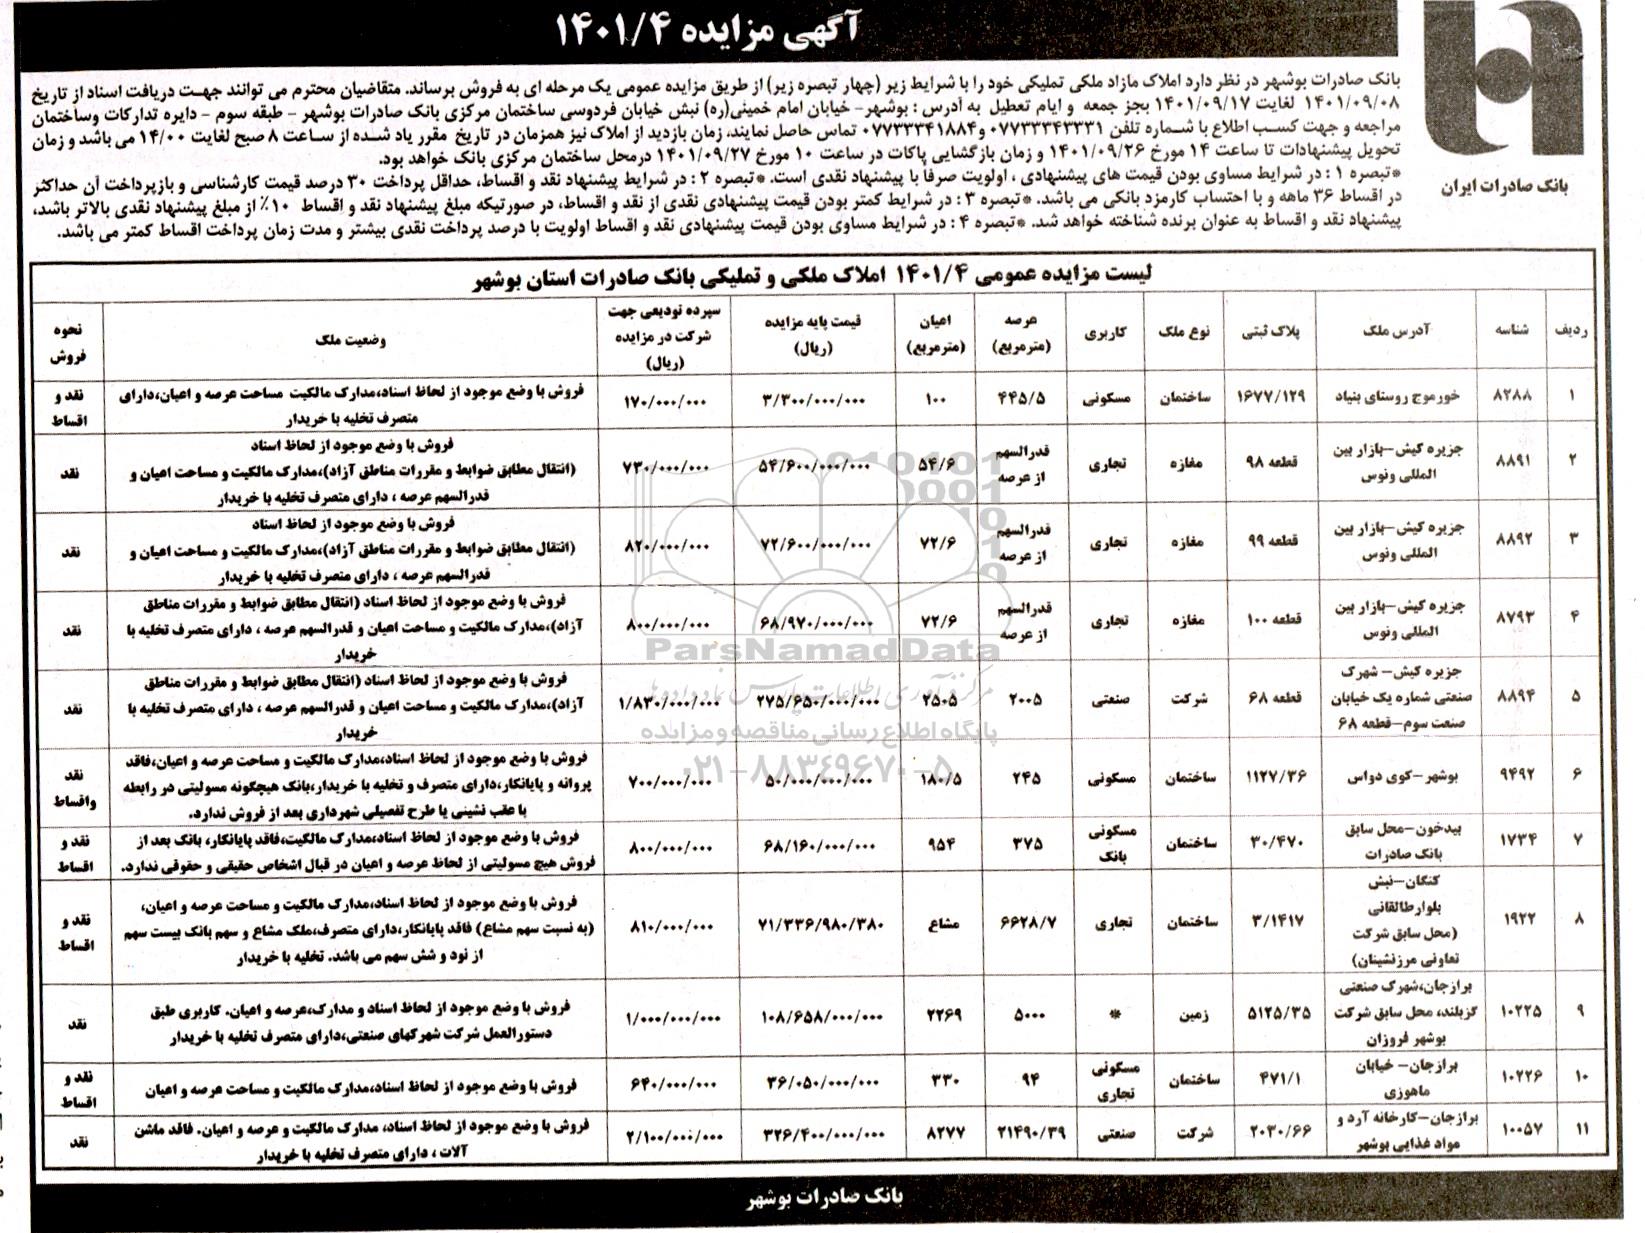 آگهی مزایده ۱۴۰۱/۴
بانک صادرات ایران
بانک صادرات بوشهر در نظر دارد املاک مازاد ملکی تملیکی خود را با شرایط زیر (چهار تبصره زیر) از طریق مزایده عمومی یک مرحله ای به فروش برساند. متقاضیان محترم می توانند جهت دریافت اسناد از تاریخ
۱۴۰۱/۰۹/۰۸ لغایت ۱۴۰۱/۰۹/۱۷ بجز جمعه و ایام تعطیل به آدرس : بوشهر- خیابان امام خمینی(ره) نبش خیابان فردوسی ساختمان مرکزی بانک صادرات بوشهر - طبقه سوم - دایره تدارکات وساختمان
مراجعه و جهت کسب اطلاع با شماره تلفن ۰۷۷۳۳۳۴۳۳۳۱ و۰۷۷۳۳۳۴۱۸۸۴ تماس حاصل نمایند، زمان بازدید از املاک نیز همزمان در تاریخ مقرر یاد شده از ساعت ۸ صبح لغایت ۱۴/۰۰ می باشد و زمان
تحویل پیشنهادات تا ساعت ۱۴ مورخ ۱۴۰۱/۰۹/۲۶ و زمان بازگشایی پاکات در ساعت ۱۰ مورخ ۱۴۰۱/۰۹/۲۷ درمحل ساختمان مرکزی بانک خواهد بود.
*تبصره ۱ : در شرایط مساوی بودن قیمت های پیشنهادی ، اولویت صرفا با پیشنهاد نقدی است. *تبصره ۲ : در شرایط پیشنهاد نقد و اقساط، حداقل پرداخت ۳۰ درصد قیمت کارشناسی و بازپرداخت آن حداکثر
در اقساط ۳۶ ماهه و با احتساب کارمزد بانکی می باشد. *تبصره ۳ : در شرایط کمتر بودن قیمت پیشنهادی نقدی از نقد و اقساط، در صورتیکه مبلغ پیشنهاد نقد و اقساط ۱۰٪ از مبلغ پیشنهاد نقدی بالاتر باشد،
پیشنهاد نقد و اقساط به عنوان برنده شناخته خواهد شد. *تبصره ۴ : در شرایط مساوی بودن قیمت پیشنهادی نقد و اقساط اولویت با درصد پرداخت نقدی بیشتر و مدت زمان پرداخت اقساط کمتر می باشد.
لیست مزایده عمومی ۱۴۰۱/۴ املاک ملکی و تملیکی بانک صادرات استان بوشهر
ردیف شناسه آدرس ملک پلاک ثبتی نوع ملک کاربری عرصه (مترمربع) اعیان (مترمربع) قیمت پایه مزایده (ریال) سپرده تودیعی جهت شرکت در مزایده (ریال) وضعیت ملک نحوه فروش
۱ ۸۲۸۸ خورموج روستای بنیاد ۱۶۷۷/۱۲۹ ساختمان مسکونی ۴۴۵/۵ ۱۰۰ ۳/۳۰۰/۰۰۰/۰۰۰ ۱۷۰/۰۰۰/۰۰۰ فروش با وضع موجود از لحاظ اسناد،مدارک مالکیت مساحت عرصه و اعیان،دارای متصرف تخلیه با خریدار نقد و اقساط
۲ ۸۸۹۱ جزیره کیش-بازار بین المللی ونوس قطعه ۹۸ مغازه تجاری قدرالسهم از عرصه ۵۴/۶ ۵۴/۶۰۰/۰۰۰/۰۰۰ ۷۳۰/۰۰۰/۰۰۰ فروش با وضع موجود از لحاظ اسناد (انتقال مطابق ضوابط و مقررات مناطق آزاد)،مدارک مالکیت و مساحت اعیان و قدرالسهم عرصه ، دارای متصرف تخلیه با خریدار نقد
۳ ۸۸۹۲ جزیره کیش-بازار بین المللی ونوس قطعه ۹۹ مغازه تجاری قدرالسهم از عرصه ۷۲/۶ ۷۲/۶۰۰/۰۰۰/۰۰۰ ۸۲۰/۰۰۰/۰۰۰ فروش با وضع موجود از لحاظ اسناد (انتقال مطابق ضوابط و مقررات مناطق آزاد)،مدارک مالکیت و مساحت اعیان و قدرالسهم عرصه ، دارای متصرف تخلیه با خریدار نقد
۴ ۸۷۹۳ جزیره کیش-بازار بین المللی ونوس قطعه ۱۰۰ مغازه تجاری قدرالسهم از عرصه ۷۲/۶ ۶۸/۹۷۰/۰۰۰/۰۰۰ ۸۰۰/۰۰۰/۰۰۰ فروش با وضع موجود از لحاظ اسناد (انتقال مطابق ضوابط و مقررات مناطق آزاد)،مدارک مالکیت و مساحت اعیان و قدرالسهم عرصه ، دارای متصرف تخلیه با خریدار نقد
۵ ۸۸۹۴ جزیره کیش- شهرک صنعتی شماره یک خیابان صنعت سوم-قطعه ۶۸ قطعه ۶۸ شرکت صنعتی ۲۰۰۵ ۲۵۰۵ ۲۷۵/۶۵۰/۰۰۰/۰۰۰ ۱/۸۳۰/۰۰۰/۰۰۰ فروش با وضع موجود از لحاظ اسناد (انتقال مطابق ضوابط و مقررات مناطق آزاد)،مدارک مالکیت و مساحت اعیان و قدرالسهم عرصه ، دارای متصرف تخلیه با خریدار نقد
۶ ۹۴۹۲ بوشهر-کوی دواس ۱۱۲۷/۳۶ ساختمان مسکونی ۲۴۵ ۱۸۰/۵ ۵۰/۰۰۰/۰۰۰/۰۰۰ ۷۰۰/۰۰۰/۰۰۰ فروش با وضع موجود از لحاظ اسناد،مدارک مالکیت و مساحت عرصه و اعیان،فاقد پروانه و پایانکار،دارای متصرف و تخلیه با خریدار،بانک هیچگونه مسولیتی در رابطه با عقب نشینی یا طرح تفصیلی شهرداری بعد از فروش ندارد. نقد واقساط
۷ ۱۷۳۴ بیدخون-محل سابق بانک صادرات ۳۰/۴۷۰ ساختمان مسکونی بانک ۳۷۵ ۹۵۴ ۶۸/۱۶۰/۰۰۰/۰۰۰ ۸۰۰/۰۰۰/۰۰۰ فروش با وضع موجود از لحاظ اسناد،مدارک مالکیت،فاقد پایانکار، بانک بعد از فروش هیچ مسولیتی از لحاظ عرصه و اعیان در قبال اشخاص حقیقی و حقوقی ندارد. نقد و اقساط
۸ ۱۹۲۲ کنگان-نبش بلوارطالقانی (محل سابق شرکت تعاونی مرزنشینان) ۳/۱۴۱۷ ساختمان تجاری ۶۶۲۸/۷ مشاع ۷۱/۳۳۶/۹۸۰/۳۸۰ ۸۱۰/۰۰۰/۰۰۰ فروش با وضع موجود از لحاظ اسناد،مدارک مالکیت و مساحت عرصه و اعیان، (به نسبت سهم مشاع) فاقد پایانکار،دارای متصرف،ملک مشاع و سهم بانک بیست سهم از نود و شش سهم می باشد. تخلیه با خریدار نقد و اقساط
۹ ۱۰۲۲۵ برازجان،شهرک صنعتی گزبلند، محل سابق شرکت بوشهر فروزان ۵۱۲۵/۳۵ زمین * ۵۰۰۰ ۲۲۶۹ ۱۰۸/۶۵۸/۰۰۰/۰۰۰ ۱/۰۰۰/۰۰۰/۰۰۰ فروش با وضع موجود از لحاظ اسناد و مدارک،عرصه و اعیان. کاربری طبق دستورالعمل شرکت شهرکهای صنعتی،دارای متصرف تخلیه با خریدار نقد
۱۰ ۱۰۲۲۶ برازجان- خیابان ماهوزی ۴۷۱/۱ ساختمان مسکونی تجاری ۹۴ ۳۳۰ ۳۶/۰۵۰/۰۰۰/۰۰۰ ۶۴۰/۰۰۰/۰۰۰ فروش با وضع موجود از لحاظ اسناد،مدارک مالکیت و مساحت عرصه و اعیان نقد و اقساط
۱۱ ۱۰۰۵۷ برازجان-کارخانه آرد و مواد غذایی بوشهر ۲۰۳۰/۶۶ شرکت صنعتی ۲۱۴۹۰/۳۹ ۸۲۷۷ ۳۲۶/۴۰۰/۰۰۰/۰۰۰ ۲/۱۰۰/۰۰۰/۰۰۰ فروش با وضع موجود از لحاظ اسناد، مدارک مالکیت و عرصه و اعیان. فاقد ماشن آلات ، دارای متصرف تخلیه با خریدار نقد
بانک صادرات بوشهر
ParsNamadData
مرکز فرآوری اطلاعات پارس نماد داده ها
پایگاه اطلاع رسانی مناقصه و مزایده
۰۲۱-۸۸۳۴۹۶۷۰-۵